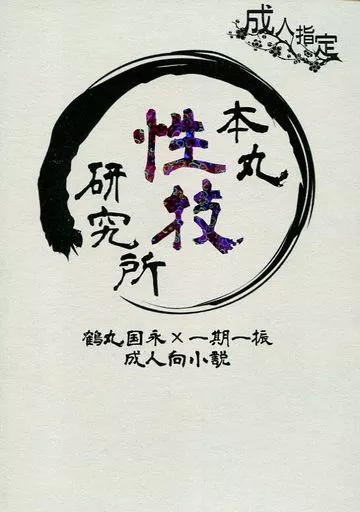 成人指定
本丸
性技
研究所
鶴丸国永×一期一振
成人向小説